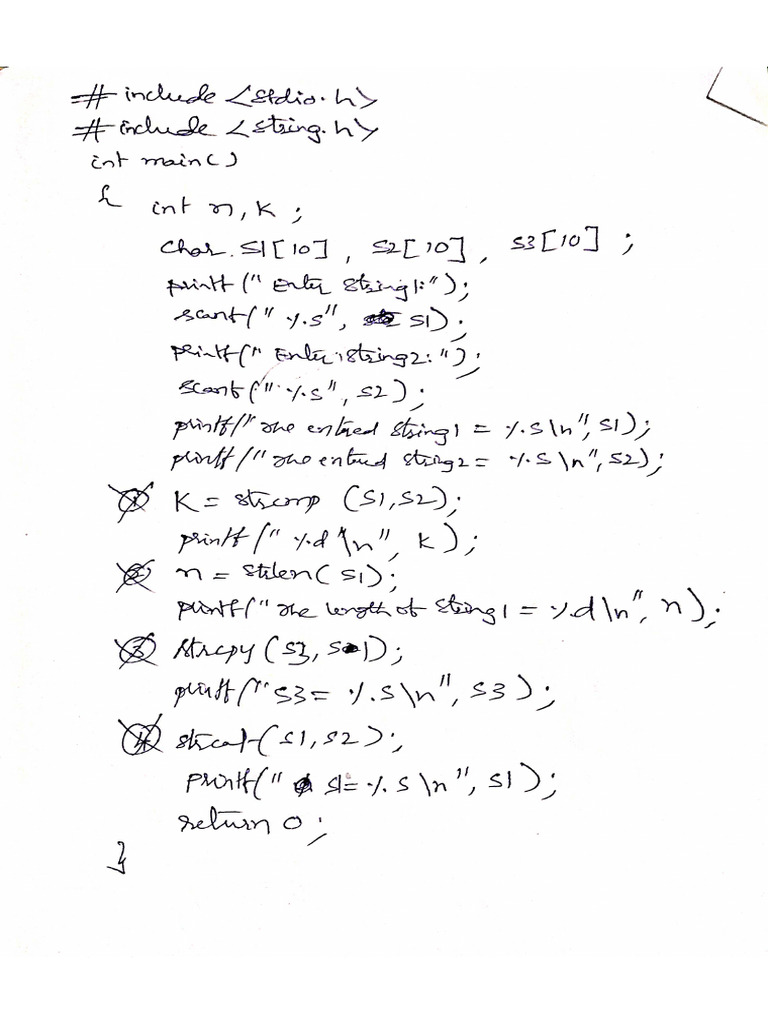 # include <stdio.h>
# include <string.h>
int main()
{ int n, k ;
char S1[10], S2[10], S3[10] ;
printf (" Enter String1:");
scanf(" %s", S1);
printf(" Enter string2:");
scanf(" %s", S2);
printf(" The entred string1 = %s\n", S1);
printf(" The entred string2 = %s\n", S2);
① K = strcmp (S1,S2);
printf(" %d \n", k);
② n = strlen(S1);
printf(" The length of string1 = %d\n", n);
③ strcpy(S3, S1);
printf(" S3= %s\n", S3);
④ strcat(S1,S2);
printf(" S1= %s\n", S1);
return 0;
}